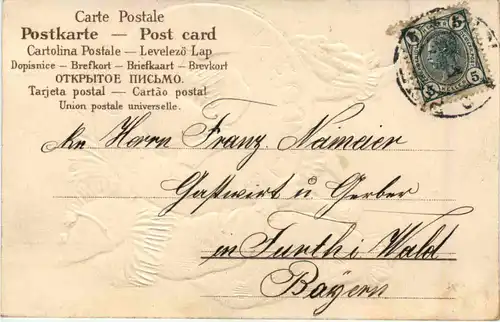 Carte Postale
Postkarte — Post card
Cartolina Postale — Levelező Lap
Dopisnice — Brefkort — Briefkaart — Brevkort
ОТКРЫТОЕ ПИСЬМО.
Tarjeta postal — Cartão postal
Union postale universelle.
5 5
5 5
An Herrn Franz Naimeier
Gastwirt u Gerber
in Furth i Wald
Bayern